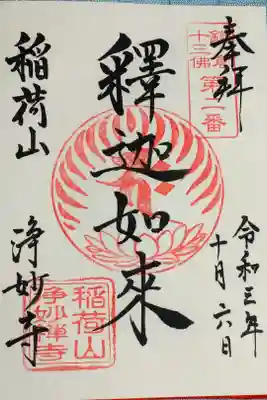 奉拝
鎌倉
十三佛
第二番
令和三年
十月六日
釋迦如來
稲荷山
浄妙寺
稲荷山
浄妙禅寺